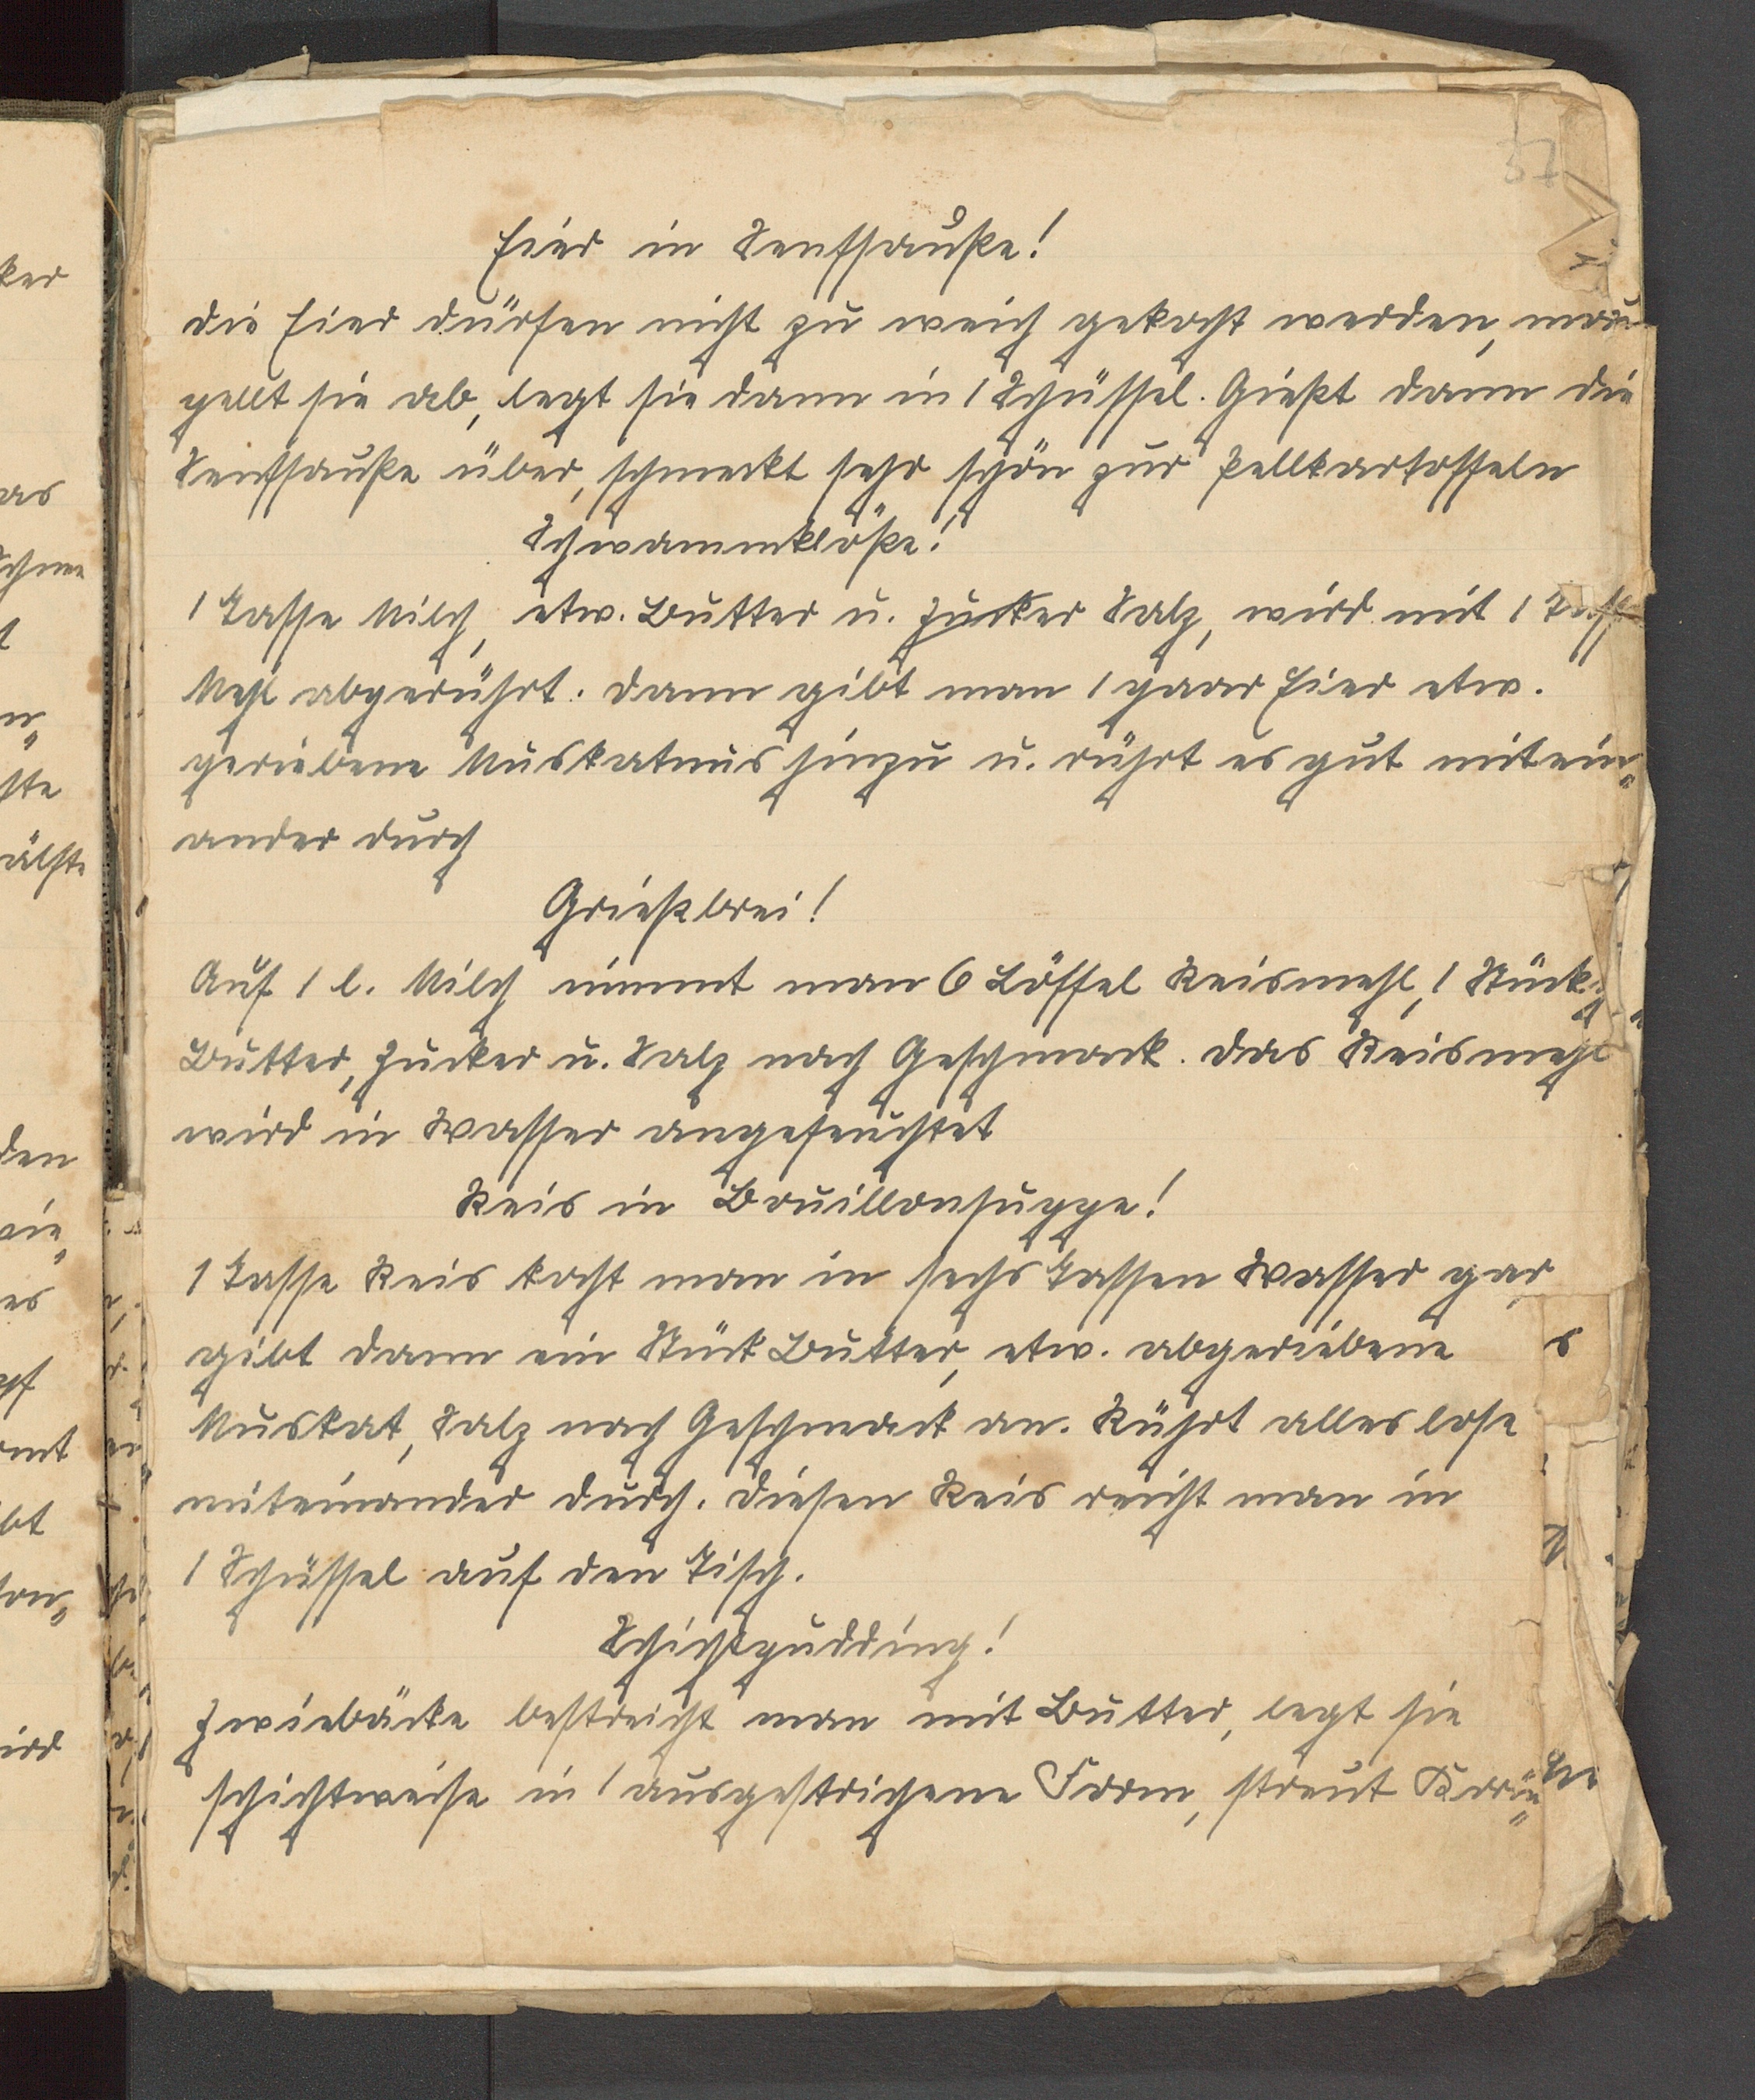 37
Eier in Senfsauße!
Die Eier dürfen nicht zu weich gekocht werden, man
pellt sie ab, legt sie dann in 1 Schüssel. Gießt dann die
Senfsauße über, schmeckt sehr schön zur Pellkartoffeln
Schwammklöße!
1 Tasse Milch, etw. Butter u. Zucker Salz, wird mit 1 Tasse
Mehl abgerührt. Dann gibt man 1 paar Eier etw.
geriebene Muskatnus hinzu u. rührt es gut mitein„
ander durch
Grießbrei!
Auf 1 l. Milch nimmt man 6 Löffel Reismehl, 1 Stück
Butter, Zucker u. Salz nach Geschmack. Das Reismehl
wird in Wasser angefeuchtet
Reis in Bouillonsuppe!
1 Tasse Reis kocht man in sechs Tassen Wasser gar,
gibt dann ein Stück Butter, etw. abgeriebene
Muskat, Salz nach Geschmack an. Rührt alles lose
miteinander durch. Diesen Reis reicht man in
1 Schüssel auf den Tisch.
Schichtpudding!
Zwiebäcke bestreicht man mit Butter, legt sie
schichtweise in 1 ausgestrichene Form, streut Korin„